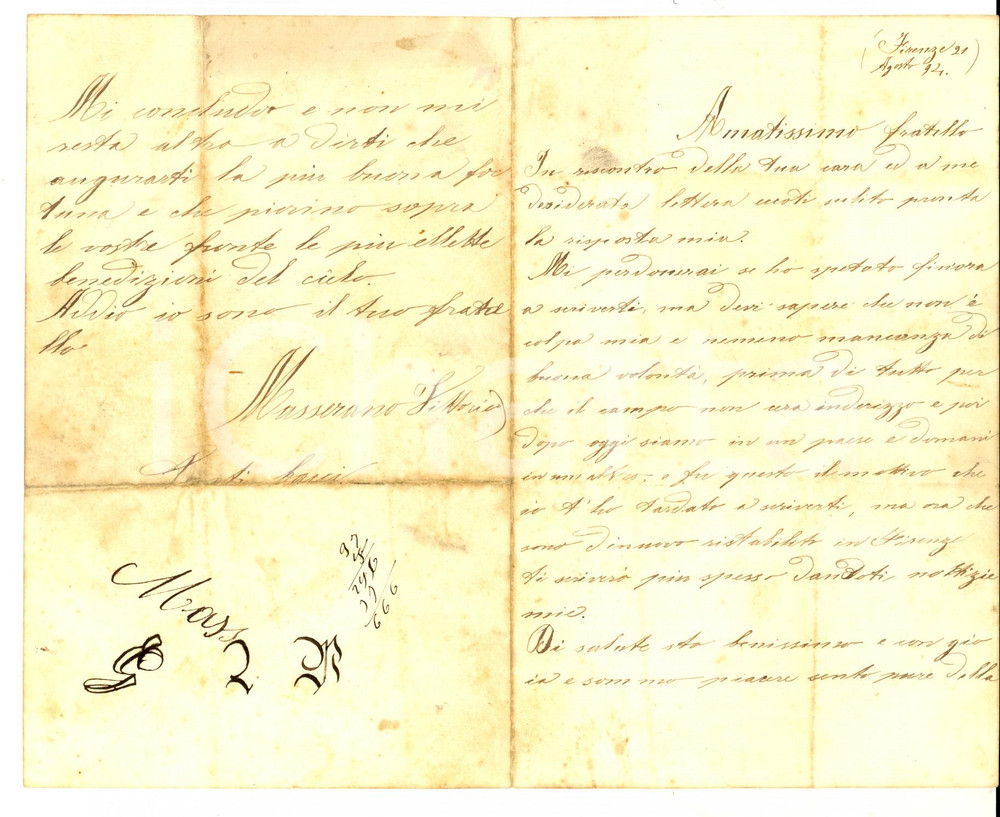 (Firenze 21
Agosto 94.)
Amatissimo fratello
In riscontro della tua cara ed a me
desiderata lettera eccoti subito pronta
la risposta mia.
Mi perdonerai se ho spetato finora
a scriverti, ma devi sapere che non è
colpa mia e nemeno mancanza di
buona volontà, prima di tutto per
che il campo non cera inderizzo e poi
dopo oggi siamo in un paese e domani
in un altro, e fu questo il mottivo che
io t'ho tardato a scriverti, ma ora che
sono dinuovo ristabilito in Firenze
ti scriverò più spesso dandoti nottizie
mie.
Di salute sto benissimo e con gio
ia e sommo piacere sento pure della
Mi concludo e non mi
resta altro a dirti che
augurarti la più buona for
tuna e che piovino sopra
le vostre fronte le più ellette
benedizioni del cielo.
Addio io sono il tuo frate
llo
Masserano Vittorio
Tanti bacci
Mass
37
8
296
77
666